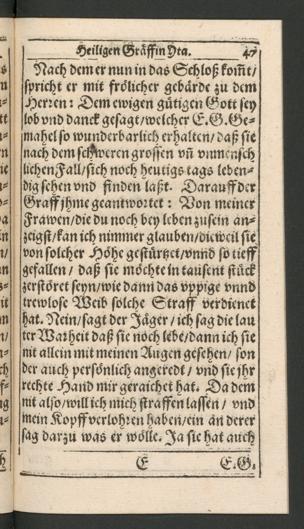 Heiligen Gräffin Yta. 47
Nach dem er nun in das Schloß kom̃t/
spricht er mit frölicher gebärde zu dem
Herren: Dem ewigen gütigen Gott sey
lob vnd danck gesagt/welcher E.G. Ge-
mahel so wunderbarlich erhalten/daß sie
nach dem schweren grossen vñ vnmensch
lichen Fall/sich noch heutigs tags leben-
dig sehen vnd finden laßt. Darauff der
Graff jhme geantwortet: Von meiner
Frawen/die du noch bey leben zusein an-
zeigst/kan ich nimmer glauben/dieweil sie
von solcher Höhe gestürtzet/vnnd so tieff
gefallen/ daß sie möchte in tausent stück
zerstöret seyn/wie dann das vppige vnnd
trewlose Weib solche Straff verdienet
hat. Nein/sagt der Jäger/ ich sag die lau
ter Warheit daß sie noch lebe/dann ich sie
mit allein mit meinen Augen gesehen/ son
der auch persönlich angeredt/ vnd sie jhr
rechte Hand mir geraichet hat. Da dem
nit also/will ich mich straffen lassen/ vnd
mein Kopff verlohren haben/ein anderer
sag darzu was er wölle. Ja sie hat auch
E E.G.